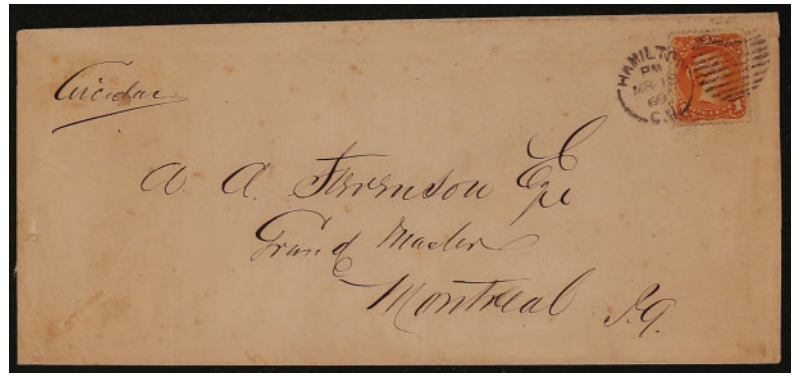 Circular
HAMILTON
PM
MR 1
69
C.W
A. A. Stevenson Esqe
Grand Master
Montreal P.Q.
1